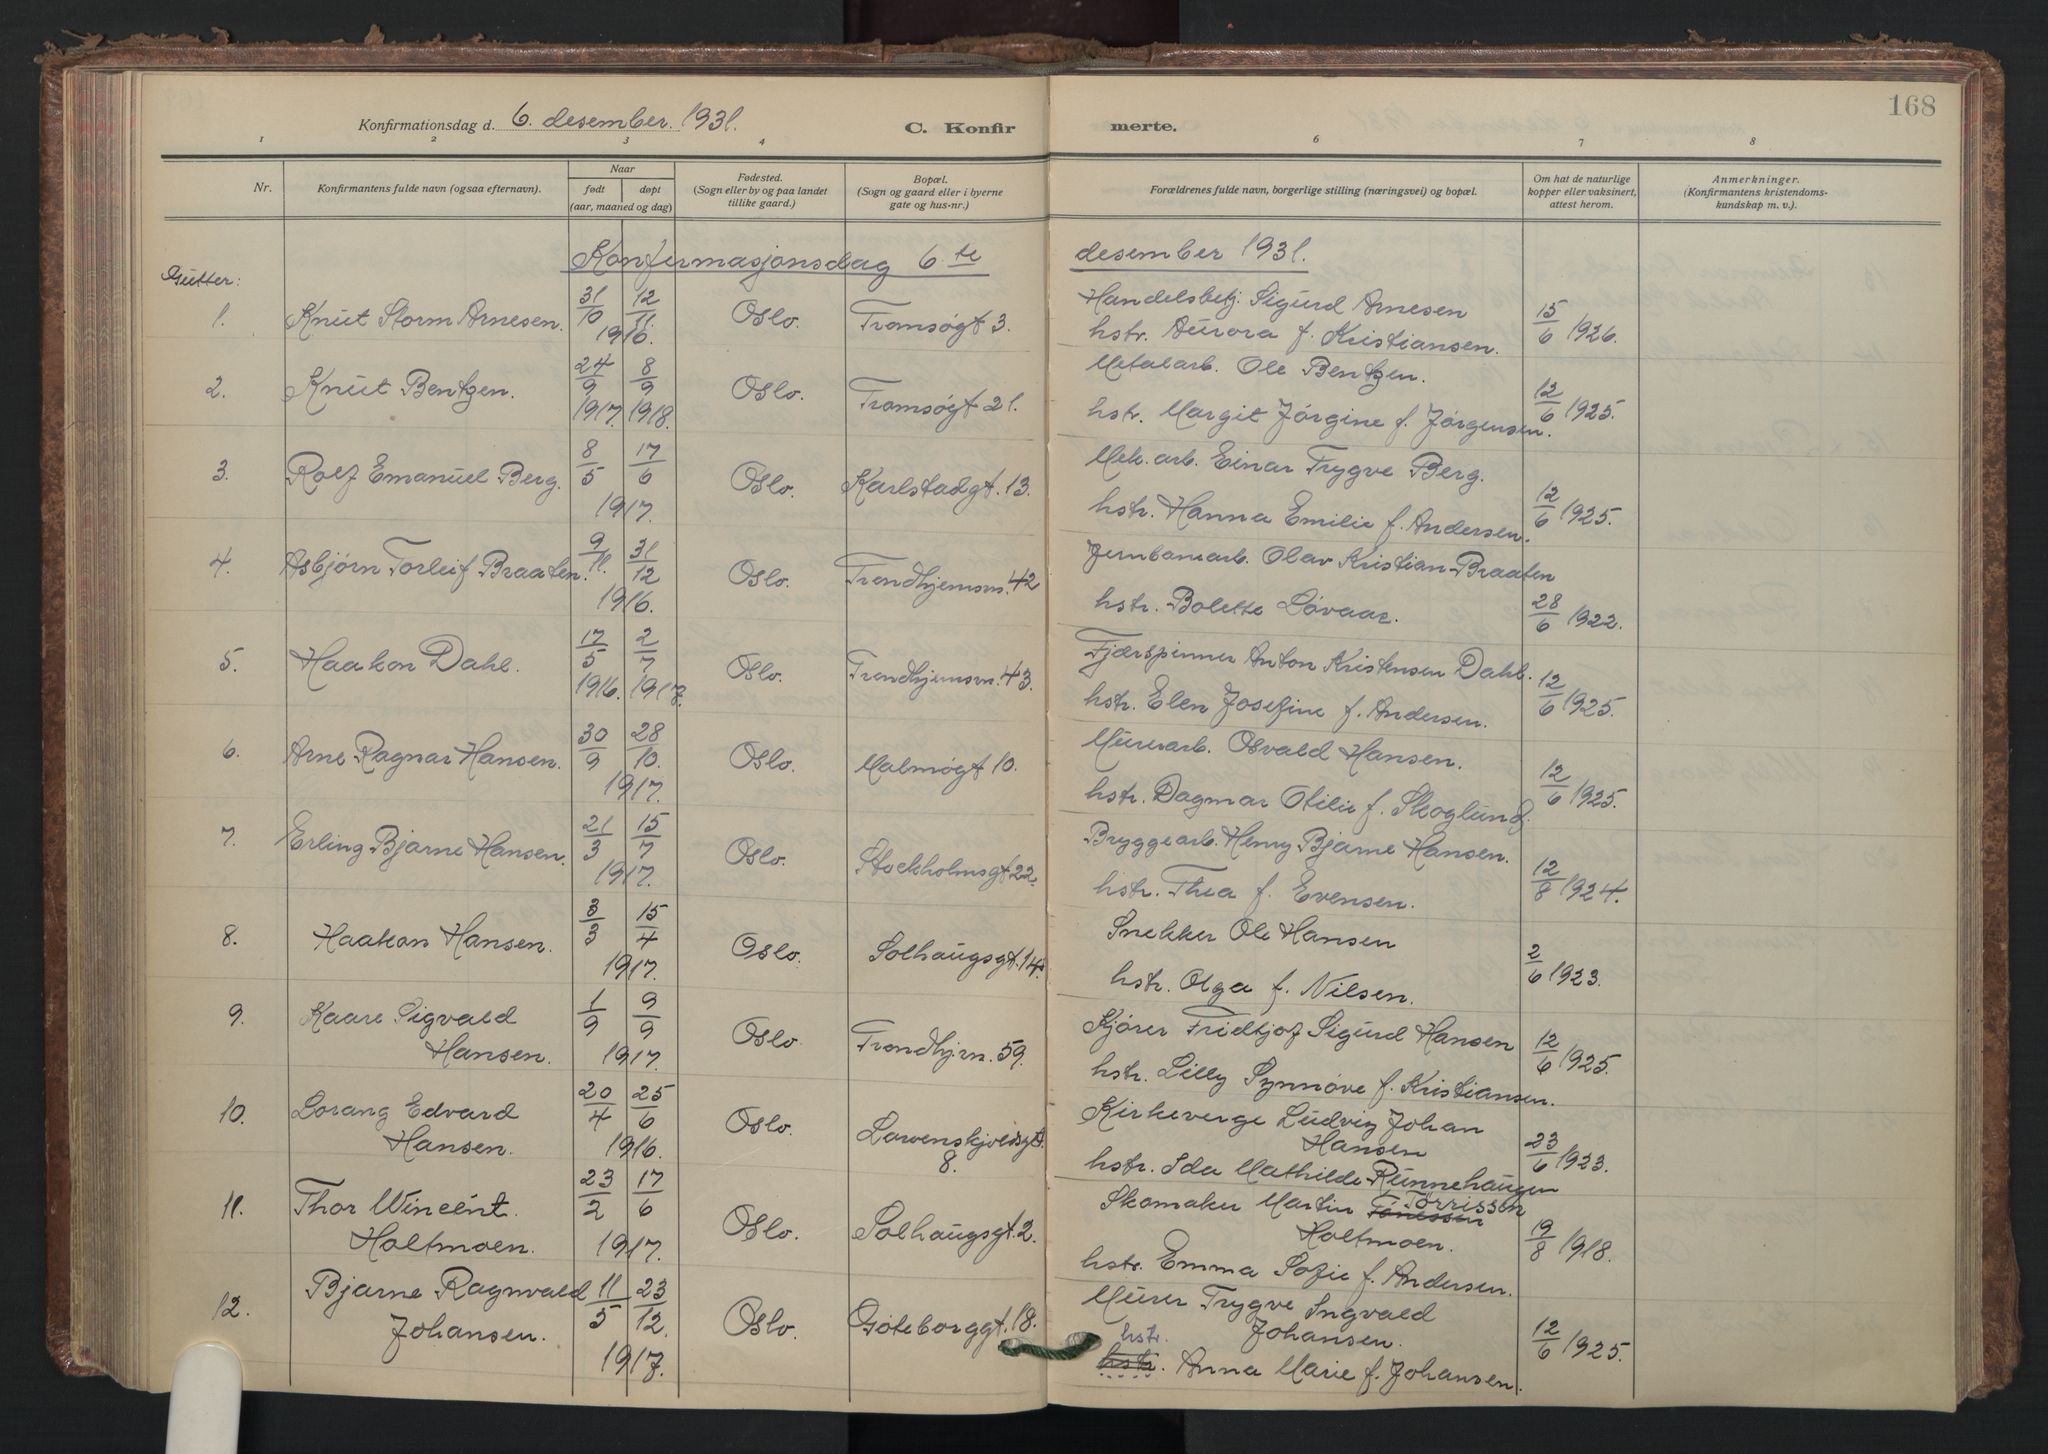 168
Konfirmationsdag d. 6. desember. 1931.
C. Konfirmerte.
1 2 3 4 6 7 8
Nr.
Konfirmantens fulde navn (ogsaa efternavn).
Naar
født
døpt
(aar, maaned og dag)
Fødested.
(Sogn eller by og paa landet
tillike gaard.)
Bopæl.
(Sogn og gaard eller i byerne
gate og hus-nr.)
Forældrenes fulde navn, borgerlige stilling (næringsvei) og bopæl.
Om hat de naturlige
kopper eller vaksinert,
attest herom.
Anmerkninger.
(Konfirmantens kristendoms-
kundskap m. v.).
Konfirmasjonsdag 6te desember 1931.
Gutter:
1. Knut Storm Arnesen. 31/10 12/11 1916. Oslo. Tromsøgt 3. Handelsbetj. Sigurd Arnesen
hstr. Aurora f. Kristiansen. 15/6 1926.
2. Knut Bentzen. 24/9 1917. 8/9 1918. Oslo. Tromsøgt 21. Metalarb. Ole Bentzen.
hstr. Margit Jørgine f. Jørgensen. 12/6 1925.
3. Rolf Emanuel Berg. 8/5 17/6 1917. Oslo. Karlstadgt. 13. Mek. arb. Einar Trygve Berg.
hstr. Hanna Emilie f. Andersen. 12/6 1925.
4. Asbjørn Torleif Braaten. 9/11. 31/12 1916. Oslo. Trondhjemsvn. 42 Jernbanearb. Olav Kristian Braaten
hstr. Bolette Løvaas. 28/6 1922.
5. Haakon Dahl. 17/5 1916. 2/7 1917. Oslo. Trondhjemsvn. 43. Fjærspinner Anton Kristensen Dahl.
hstr. Elen Josefine f. Andersen. 12/6 1925.
6. Arne Ragnar Hansen. 30/9 28/10. 1917. Oslo. Malmøgt 10. Murerarb. Osvald Hansen.
hstr. Dagmar Otilie f. Skoglund. 12/6 1925.
7. Erling Bjarne Hansen. 21/3 15/7 1917. Oslo. Stockholmsgt 22. Bryggearb. Henry Bjarne Hansen.
hstr. Thea f. Evensen. 12/8 1924.
8. Haakon Hansen. 3/3 15/4 1917. Oslo. Solhaugsgt. 14. Snekker Ole Hansen
hstr. Olga f. Nilsen. 2/6 1923.
9. Kaare Sigvald
Hansen. 1/9 9/9 1917. Oslo. Trondhjvn. 59. Kjører Fridtjof Sigurd Hansen
hstr. Lilly Synnøve f. Kristiansen. 12/6 1925.
10. Lorang Edvard
Hansen. 20/4 25/6 1916. Oslo. Lovenskjoldsgt.
8. Kirkeverge Ludvig Johan
Hansen
hstr. Ida Mathilde Runnehaugen 23/6 1923.
11. Thor Wincent.
Holtmoen. 23/2 17/6 1917. Oslo. Solhaugsgt. 2. Skomaker Martin Torrissen
Holtmoen.
hstr. Emma Sofie f. Andersen. 19/8 1918.
12. Bjarne Ragnvald
Johansen. 11/5 23/12. 1917. Oslo. Göteborggt. 18. Murer Trygve Ingvald
Johansen.
hstr.
hstr. Anna Marie f. Johansen. 12/6 1925.